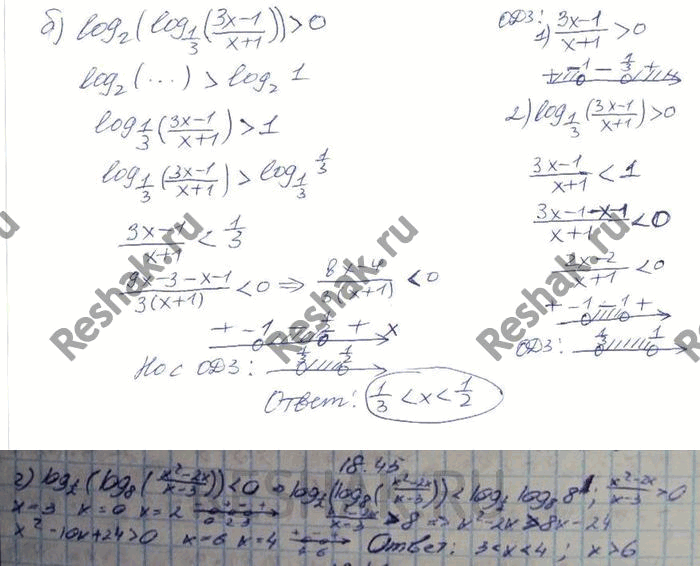 б) log₂(log_{1/3}((3x-1)/(x+1)))>0
log₂(...) > log₂ 1
log_{1/3}((3x-1)/(x+1))>1
log_{1/3}((3x-1)/(x+1))>log_{1/3} 1/3
(3x-1)/(x+1) < 1/3
(9x-3-x-1)/(3(x+1)) <0 ⇒ (8x-4)/(3(x+1)) <0
+ -1 - 1/2 + x
Но с ОДЗ: 1/3 1/2
Ответ: 1/3 <x< 1/2
ОДЗ:
1) (3x-1)/(x+1) >0
+ -1 - 1/3 +
2) log_{1/3}((3x-1)/(x+1))>0
(3x-1)/(x+1) < 1
(3x-1-x-1)/(x+1) <0
(2x-2)/(x+1) <0
+ -1 - 1 +
ОДЗ: 1/3 1
Reshak.ru
Reshak.ru
Reshak.ru
18.45
г) (log₈((x²-2x)/(x-3)))<0 (log₈((x²-2x)/(x-3)))< log₈8; (x²-2x)/(x-3) >0
x=3 x=0 x=2 0 2 3 (x²-2x)/(x-3) >8 => x²-2x>8x-24
x²-10x+24>0 x=6 x=4 + - + 4 6 Ответ: 3<x<4; x>6